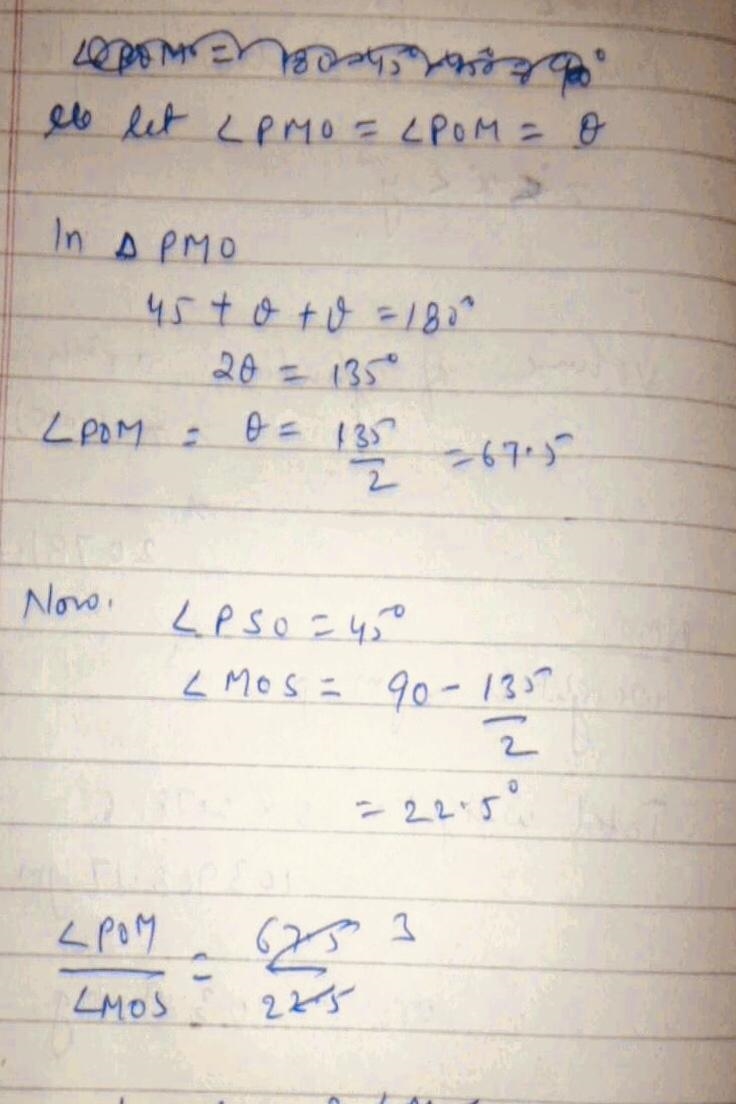 ∠POM = 180-45-45 = 90°
let ∠PMO = ∠POM = θ
In Δ PMO
45 + θ + θ = 180°
2θ = 135°
∠POM = θ = 135/2 = 67.5
Now. ∠PSO = 45°
∠MOS = 90 - 135/2
= 22.5°
∠POM/∠MOS = 67.5/22.5 3